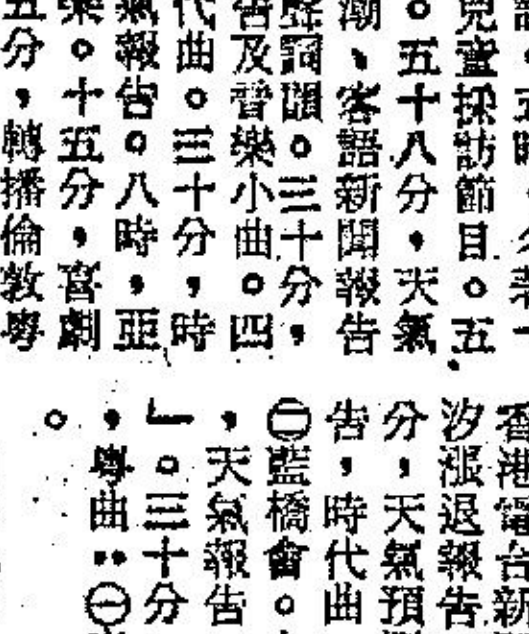 兒童採訪節目。五
。五十八分，天氣
潮、客語新聞報告
聲詞韻。三十分，
告及音樂小曲。四
代曲。三十分，時
氣報告。八時，亞
樂。十五分，喜劇
五分，轉播倫敦粵
香港電台新
汐漲退報告
分，天氣預
告，時代曲
㊁藍橋會。
，天氣報告
」。三十分
，粵曲：㊀
。